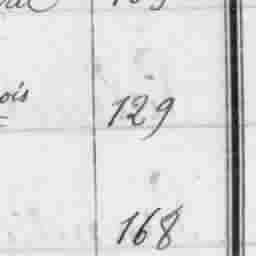 ois 129
168